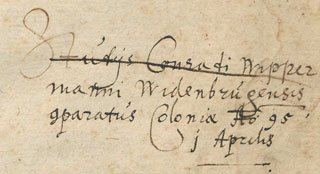 Studijs Conradi Wipper
manni Widenbrugensis
ꝯparatus Coloniæ Aº 95
j Aprilis